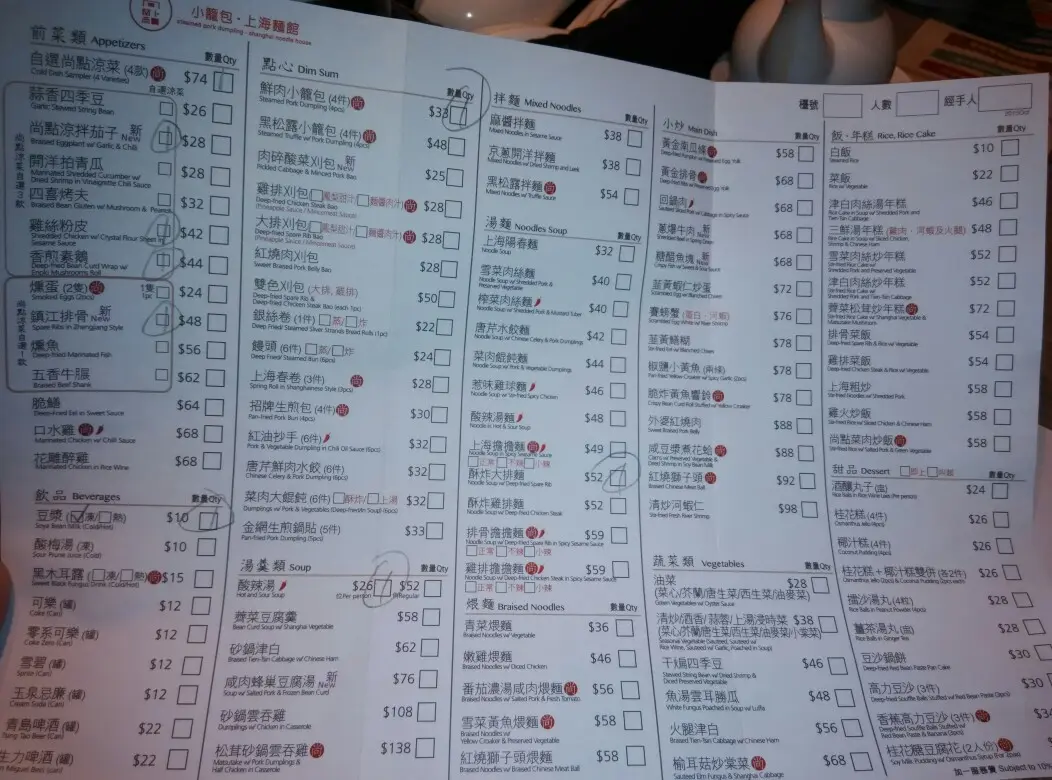 小籠包·上海麵館
xiaomeli pork dumpling · shanghai noodle house
前菜類 Appetizers 數量Qty
自選尚點涼菜 (4款) 尚 $74
Cold Dish Sampler (4 Varieties)
自選涼菜
蒜香四季豆 $26
Garlic Stewed String Bean
尚點涼拌茄子 新 New $28
Braised Eggplant w/ Garlic & Chili
開洋拍青瓜 $28
Marinated Shredded Cucumber w/
Dried Shrimp in Vinaigrette Chili Sauce
四喜烤夫 $32
Braised Bean Gluten w/ Mushroom & Peanuts
雞絲粉皮 $42
Shredded Chicken w/ Crystal Flour Sheet in
Sesame Sauce
香煎素鵝 $44
Deep-fried Bean Curd Wrap w/
Enoki Mushrooms Roll
燻蛋 (2隻) 尚 1隻 1pc $24
Smoked Eggs (2pcs)
鎮江排骨 新 New $48
Spare Ribs in Zhengjiang Style
燻魚 $56
Deep-fried Marinated Fish
五香牛脤 $62
Braised Beef Shank
脆鱔 $64
Deep-fried Eel in Sweet Sauce
口水雞 尚 $68
Marinated Chicken w/ Chili Sauce
花雕醉雞 $68
Marinated Chicken in Rice Wine
飲品 Beverages 數量Qty
豆漿 (凍/熱) $10
Soya Bean Milk (Cold/Hot)
酸梅湯 (凍) $10
Sour Prune Juice (Cold)
黑木耳露 (凍/熱) 尚 $15
Sweet Black Fungus Drink (Cold/Hot)
可樂 (罐) $12
Coke (Can)
零系可樂 (罐) $12
Coke Zero (Can)
雪碧 (罐) $12
Sprite (Can)
玉泉忌廉 (罐) $12
Cream Soda (Can)
青島啤酒 (罐) $22
Tsing Tao Beer (Can)
生力啤酒 (罐) $22
San Miguel Beer (Can)
點心 Dim Sum 數量Qty
鮮肉小籠包 (4件) 尚 $33
Steamed Pork Dumpling (4pcs)
黑松露小籠包 (4件) 尚 $48
Steamed Truffle w/ Pork Dumpling (4pcs)
肉碎酸菜刈包 新 New $25
Pickled Cabbage & Minced Pork Bao
雞排刈包 鳳梨甜汁 麵醬肉汁 尚 $28
Deep-fried Chicken Steak Bao
(Pineapple Sauce / Mincemeat Sauce)
大排刈包 鳳梨甜汁 麵醬肉汁 尚 $28
Deep-fried Spare Rib Bao
(Pineapple Sauce / Mincemeat Sauce)
紅燒肉刈包 $28
Sweet Braised Pork Belly Bao
雙色刈包 (大排, 雞排) $50
Deep-fried Spare Rib &
Deep-fried Chicken Steak Bao (each 1pc)
銀絲卷 (1件) 蒸/炸 $22
Deep Fried/ Steamed Silver Strands Bread Rolls (1pc)
饅頭 (6件) 蒸/炸 $24
Deep Fried/ Steamed Bun (6pcs)
上海春卷 (3件) 尚 $28
Spring Roll in Shanghainese Style (3pcs)
招牌生煎包 (4件) 尚 $30
Pan-fried Pork Bun (4pcs)
紅油抄手 (6件) $32
Pork & Vegetable Dumpling in Chili Oil Sauce (6pcs)
唐芹鮮肉水餃 (6件) $32
Chinese Celery & Pork Dumpling (6pcs)
菜肉大餛飩 (6件 酥炸/上湯) $32
Pork & Vegetable Dumplings (Deep-fried/in Soup) (6pcs)
金網生煎鍋貼 (5件) $33
Pan-fried Pork Dumpling (5pcs)
湯羹類 Soup 數量Qty
酸辣湯 $26 (位/Per person) $52 (例/Regular)
Hot and Sour Soup
薺菜豆腐羹 $58
Bean Curd Soup w/ Shanghai Vegetable
砂鍋津白 $62
Braised Tien-Tsin Cabbage w/ Chinese Ham
咸肉蜂巢豆腐湯 新 New $76
Soup w/ Salted Pork & Frozen Bean Curd
砂鍋雲吞雞 $108
Dumplings w/ Chicken in Casserole
松茸砂鍋雲吞雞 尚 $138
Matsutake w/ Pork Dumplings &
Half Chicken in Casserole
拌麵 Mixed Noodles 數量Qty
麻醬拌麵 $38
Mixed Noodles in Sesame Sauce
京蔥開洋拌麵 $38
Mixed Noodles w/ Dried Shrimp and Leek
黑松露拌麵 尚 $54
Mixed Noodles w/ Truffle Sauce
湯麵 Noodles Soup 數量Qty
上海陽春麵 $32
Noodle Soup
雪菜肉絲麵 $40
Noodle Soup w/ Shredded Pork &
Preserved Vegetable
榨菜肉絲麵 $40
Noodle Soup w/ Shredded Pork & Mustard Tuber
唐芹水餃麵 $42
Noodle Soup w/ Chinese Celery & Pork Dumplings
菜肉餛飩麵 $44
Noodle Soup w/ Pork & Vegetable Dumplings
惹味雞球麵 $46
Noodle Soup w/ Stir-fried Spicy Chicken
酸辣湯麵 $48
Noodle in Hot & Sour Soup
上海擔擔麵 尚 $49
Noodle Soup in Spicy Sesame Sauce
正常 不辣 小辣
酥炸大排麵 $52
Noodle Soup w/ Deep-fried Spare Rib
酥炸雞排麵 $52
Noodle Soup w/ Deep-fried Chicken Steak
排骨擔擔麵 尚 $59
Noodle Soup w/ Deep-fried Spare Rib in Spicy Sesame Sauce
正常 不辣 小辣
雞排擔擔麵 尚 $59
Noodle Soup w/ Deep-fried Chicken Steak in Spicy Sesame Sauce
正常 不辣 小辣
煨麵 Braised Noodles 數量Qty
青菜煨麵 $36
Braised Noodles w/ Vegetable
嫩雞煨麵 $46
Braised Noodles w/ Diced Chicken
番茄濃湯咸肉煨麵 尚 $56
Braised Noodles w/ Salted Pork & Fresh Tomato
雪菜黃魚煨麵 尚 $58
Braised Noodles w/
Yellow Croaker & Preserved Vegetable
紅燒獅子頭煨麵 $58
Braised Noodles w/ Braised Chinese Meat Ball
檯號 人數 經手人
小炒 Main Dish 數量Qty
黃金南瓜條 尚 $58
黃金排骨 尚 $68
回鍋肉 $68
蔥爆牛肉 $68
糖醋魚塊 新 $68
韮黃蝦仁炒蛋 $72
賽螃蟹 (蛋白、河蝦) $76
韮黃鱔糊 $78
椒鹽小黃魚 (兩條) $78
脆炸黃魚響鈴 尚 $78
外婆紅燒肉 $88
Sweet Braised Pork Belly
咸豆漿煮花蛤 尚 $88
紅燒獅子頭 尚 $92
Braised Chinese Meat Ball
清炒河蝦仁 $98
Stir-fried Fresh River Shrimp
蔬菜類 Vegetables 數量Qty
油菜 $28
(菜心/芥蘭/唐生菜/西生菜/油麥菜)
Green Vegetables w/ Oyster Sauce
清炒/酒香/蒜蓉/上湯浸時菜 $38
(菜心/芥蘭/唐生菜/西生菜/油麥菜/小棠菜)
Seasonal Vegetable (Sauteed, Sauteed w/
Rice Wine, Sauteed w/ Garlic, Poached in Soup)
干煸四季豆 $46
Stewed String Bean w/ Dried Shrimp &
Diced Preserved Vegetable
魚湯雲耳勝瓜 $48
White Fungus Poached in Soup w/ Luffa
火腿津白 $56
Braised Tien-Tsin Cabbage w/ Chinese Ham
榆耳菇炒棠菜 尚 $68
Sauteed Elm Fungus & Shanghai Cabbage
飯·年糕 Rice, Rice Cake 數量Qty
白飯 $10
Steamed Rice
菜飯 $22
Rice w/ Vegetable
津白肉絲湯年糕 $46
Rice Cake in Soup w/ Shredded Pork and
Tien-Tsin Cabbage
三鮮湯年糕 (雞肉、河蝦及火腿) $48
Rice Cake in Soup w/ Sliced Chicken,
Shrimp & Chinese Ham
雪菜肉絲炒年糕 $52
Stir-fried Rice Cake w/
Shredded Pork and Preserved Vegetable
津白肉絲炒年糕 $52
Stir-fried Rice Cake w/
Shredded Pork and Tien-Tsin Cabbage
薺菜松茸炒年糕 尚 $72
Stir-fried Rice Cake w/ Shanghai Vegetable &
Matsutake Mushroom
排骨菜飯 $54
Deep-fried Spare Rib & Rice w/ Vegetable
雞排菜飯 $54
Deep-fried Chicken Steak & Rice w/ Vegetable
上海粗炒 $58
雞火炒飯 $58
尚點菜肉炒飯 尚 $58
甜品 Dessert 數量Qty
酒釀丸子 (位) $24
桂花糕 (4件) $26
Osmanthus Jello (4pcs)
椰汁糕 (4件) $26
Coconut Pudding (4pcs)
桂花糕+椰汁糕雙併 (各2件) $26
擂沙湯丸 (4粒) $28
Rice Balls in Peanut Powder (4pcs)
薑茶湯丸 (位) $28
Rice Balls in Ginger Tea
豆沙鍋餅 $30
Deep-fried Red Bean Paste Pan Cake
高力豆沙 (3件) $30
香蕉高力豆沙 (3件) 尚
桂花糖豆腐花 (2人份) 尚
加一服務費 Subject to 10%